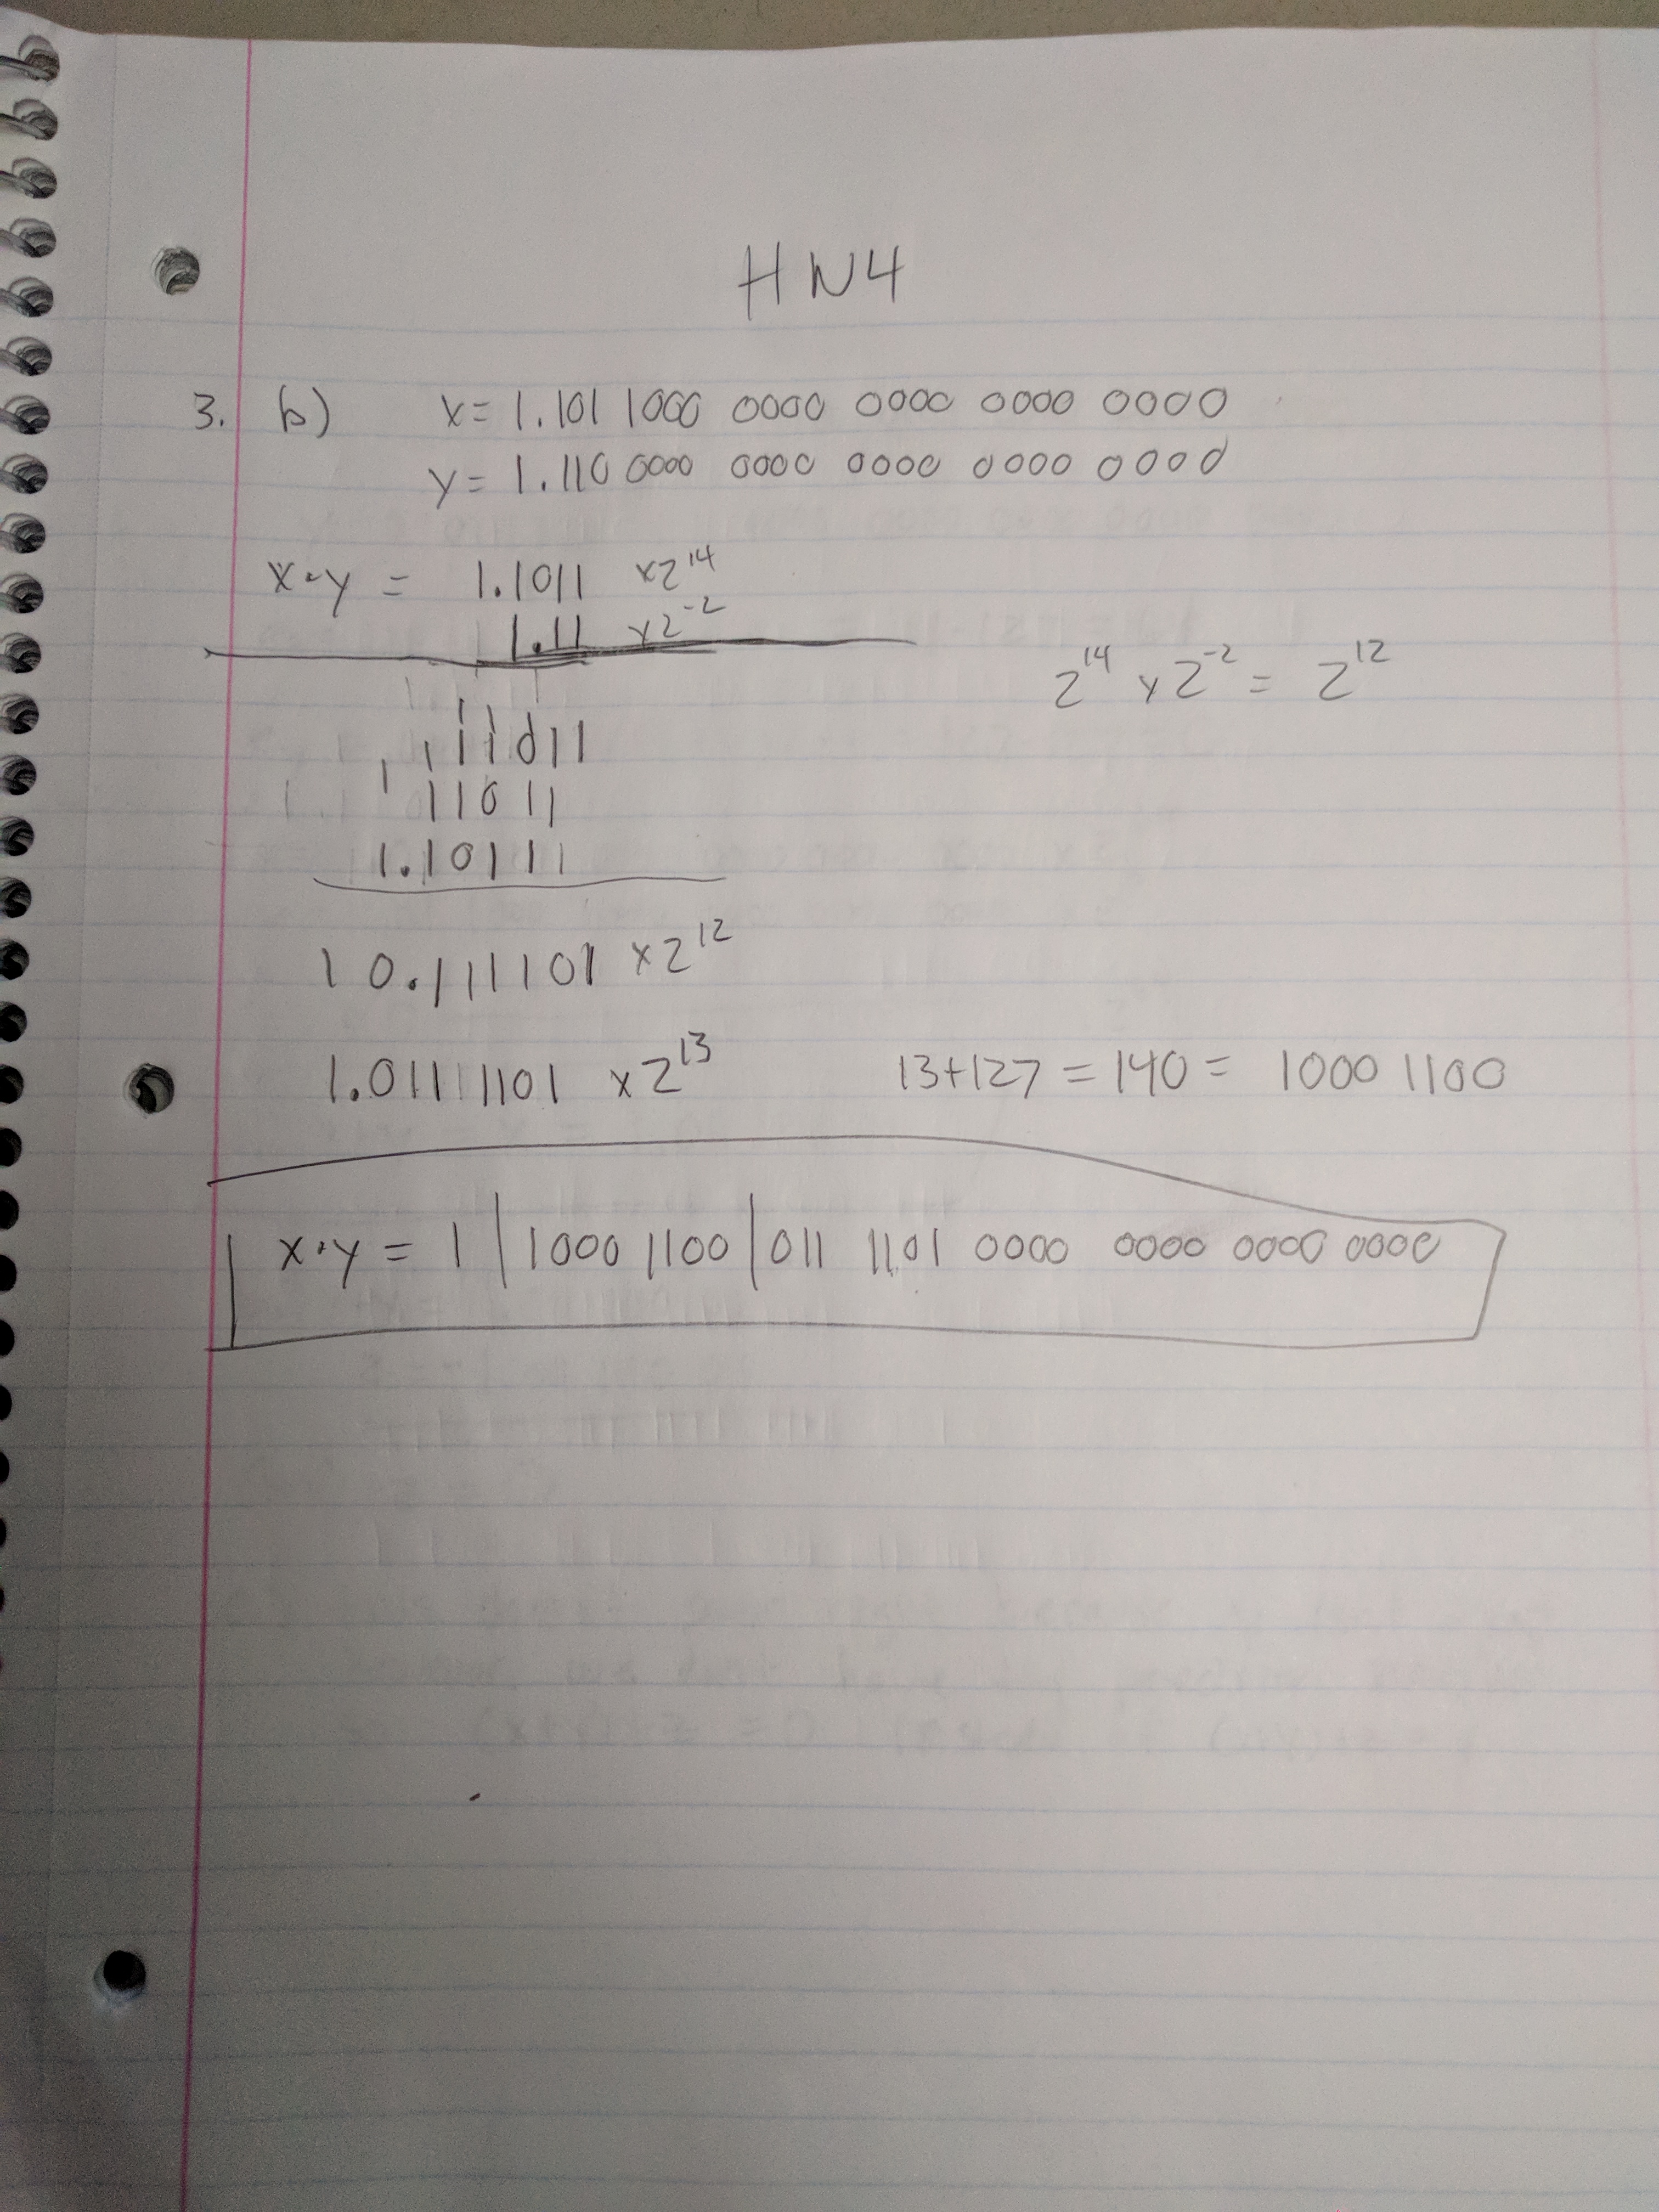 HW4
3. b) x= 1.101 1000 0000 0000 0000 0000
y= 1.110 0000 0000 0000 0000 0000
x·y = 1.1011 x2^14
1.11 x2^-2
2^14 x 2^-2 = 2^12
11
1 1 11011
1 11011
1.10111
10.111101 x2^12
1.01111101 x2^13 13+127 = 140 = 1000 1100
x·y = 1 | 1000 1100 | 011 1101 0000 0000 0000 0000